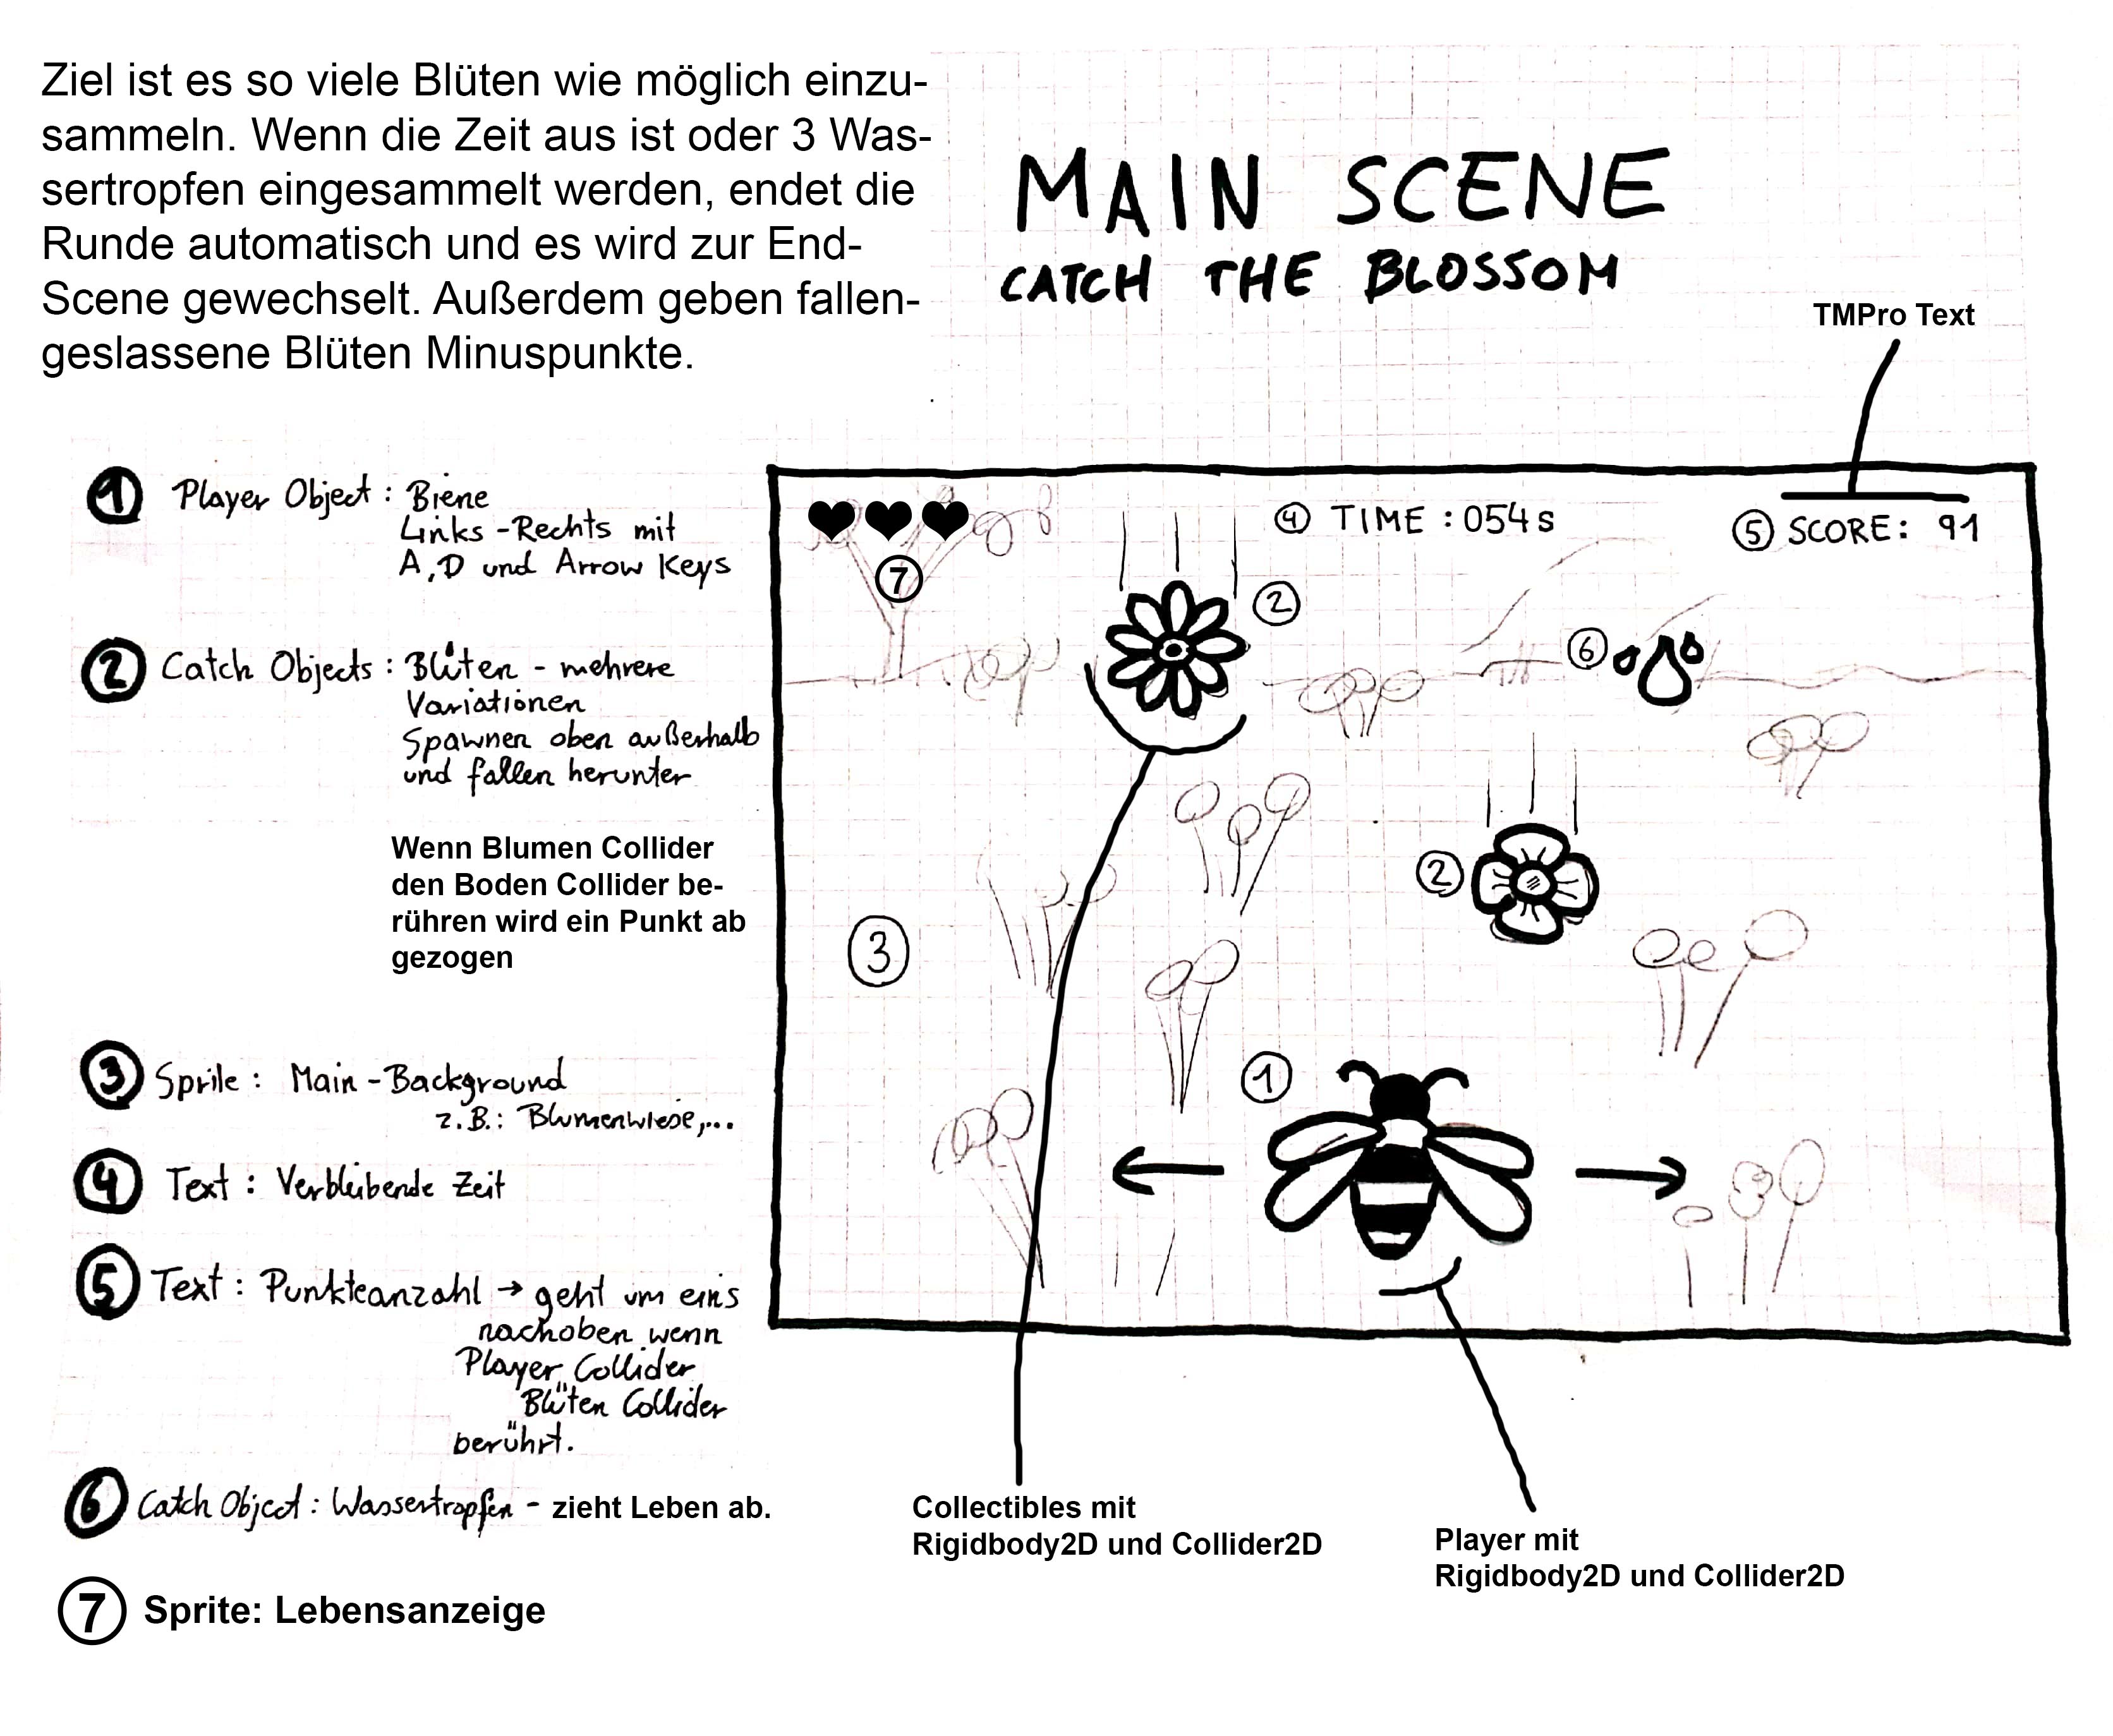 Ziel ist es so viele Blüten wie möglich einzu-
sammeln. Wenn die Zeit aus ist oder 3 Was-
sertropfen eingesammelt werden, endet die
Runde automatisch und es wird zur End-
Scene gewechselt. Außerdem geben fallen-
geslassene Blüten Minuspunkte.
MAIN SCENE
CATCH THE BLOSSOM
TMPro Text
1 Player Object: Biene
Links-Rechts mit
A, D und Arrow Keys
2 Catch Objects: Blüten - mehrere
Variationen
Spawnen oben außerhalb
und fallen herunter
Wenn Blumen Collider
den Boden Collider be-
rühren wird ein Punkt ab
gezogen
3 Sprite: Main-Background
z.B.: Blumenwiese,...
4 Text: Verbleibende Zeit
5 Text: Punkteanzahl → geht um eins
nachoben wenn
Player Collider
Blüten Collider
berührt.
6 Catch Object: Wassertropfen - zieht Leben ab.
7 Sprite: Lebensanzeige
7
4 TIME: 054s
5 SCORE: 91
2
6
2
3
1
Collectibles mit
Rigidbody2D und Collider2D
Player mit
Rigidbody2D und Collider2D